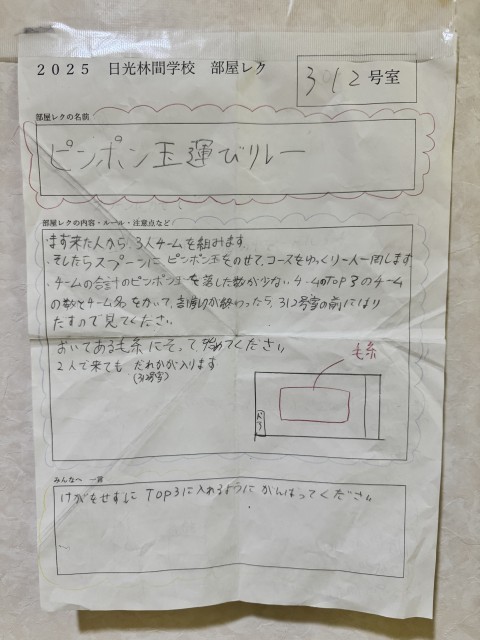 2025 日光林間学校 部屋レク
312号室
部屋レクの名前
ピンポン玉運びリレー
部屋レクの内容・ルール・注意点など
・まず来た人から3人チームを組みます
・そしたらスプーンにピンポン玉をのせて、コースをゆっくり一人一周します
・チームの合計のピンポン玉を落した数が少ないチームのTOP3のチーム
の数とチーム名をかいて、が終わったら、312号室の前にはり
だすので見てください
おいてある毛糸にそって進めてください
2人で来ても だれかが入ります
(312号室)
毛糸
ドア
みんなへ 一言
けがをせずに TOP3に入れるように がんばってください